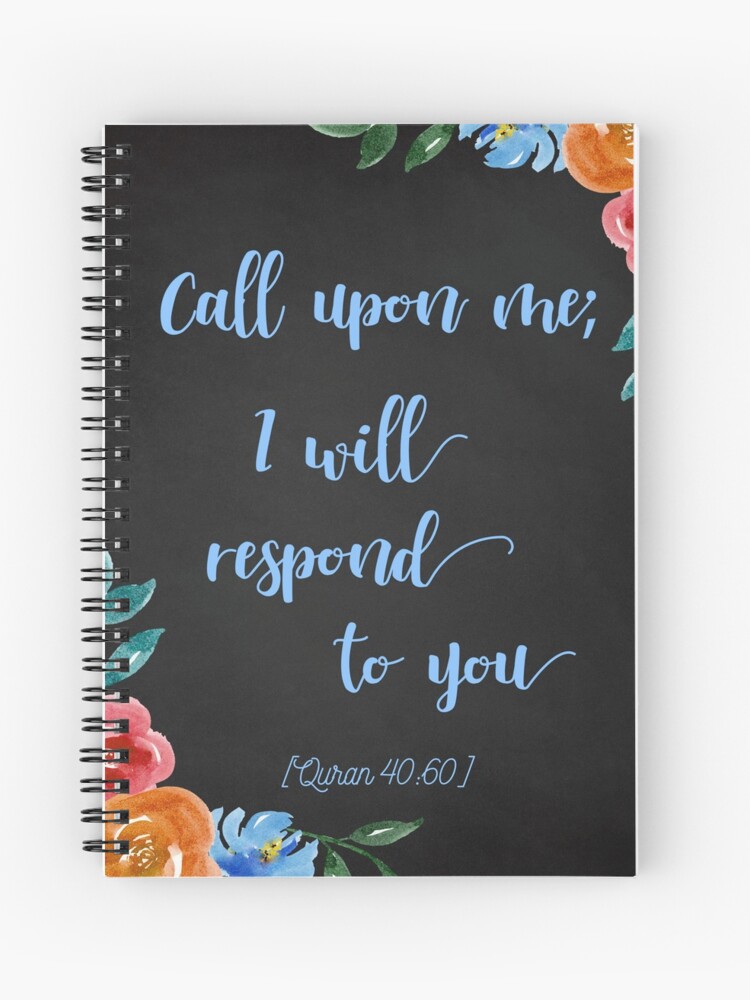 Call upon me;
I will
respond
to you
[Quran 40:60]